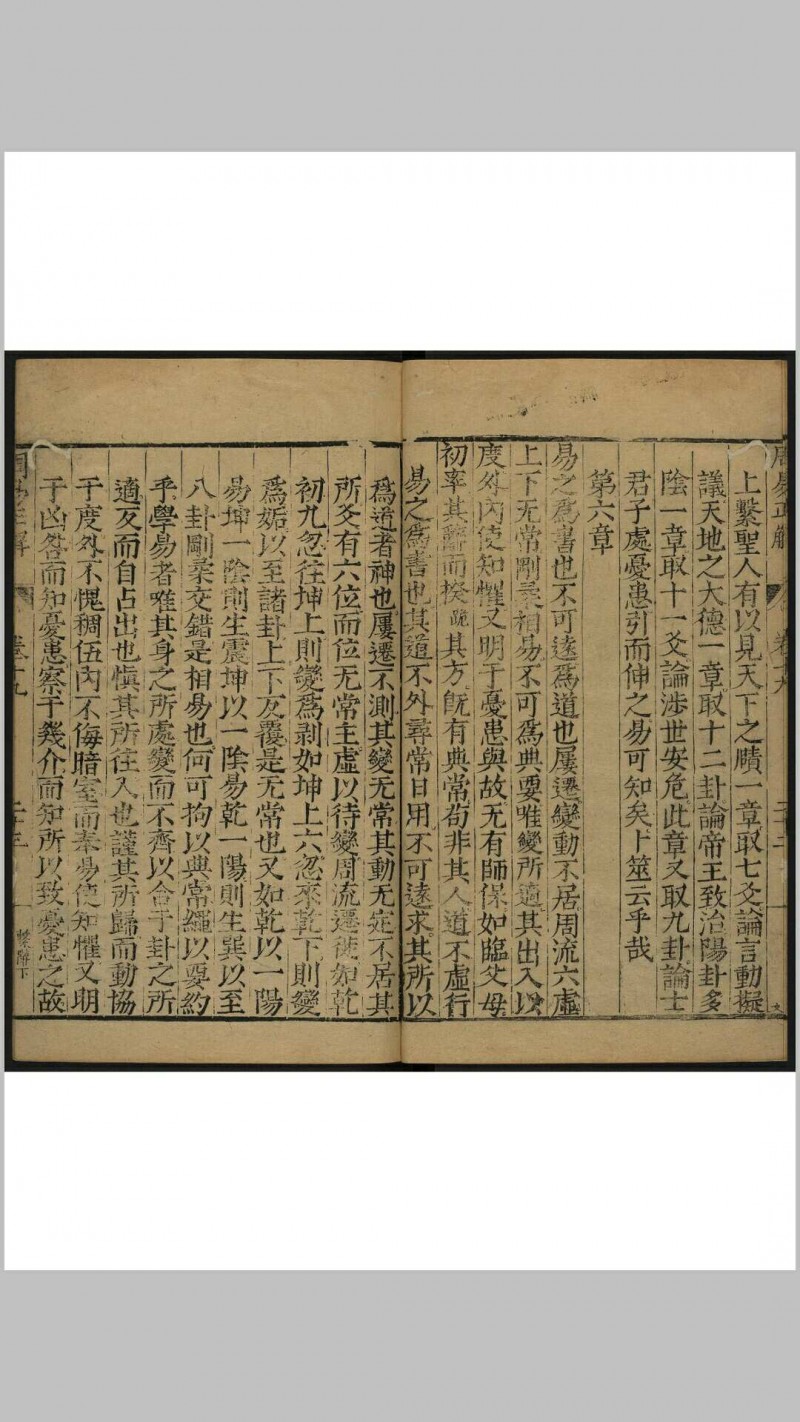 周易正解
卷十九
二十二
上繫聖人有以見天下之賾一章取七爻論言動擬
議天地之大德一章取十二卦論帝王致治陽卦多
陰一章取十一爻論涉世安危此章又取九卦論士
君子處憂患引而伸之易可知矣卜筮云乎哉
第六章
易之爲書也不可遠爲道也屢遷變動不居周流六虛
上下无常剛柔相易不可爲典要唯變所適其出入以
度外內使知懼又明于憂患與故无有師保如臨父母
初率其辭而揆
其方旣有典常苟非其人道不虛行
易之爲書也其道不外尋常日用不可遠求其所以
爲道者神也屢遷不測其變无常其動无定不居其
所爻有六位而位无常主虛以待變周流遷徙如乾
初九忽往坤上則變爲剥如坤上六忽來乾下則變
爲姤以至諸卦上下反覆是无常也又如乾以一陽
易坤一陰則生震坤以一陰易乾一陽則生巽以至
八卦剛柔交錯是相易也何可拘以典常繩以要約
乎學易者唯其身之所處變而不齊以合于卦之所
適反而自占出也愼其所往入也謹其所歸而動協
于度外不愧稠伍內不侮暗室而奉易使知懼又明
于凶咎而知憂患察于幾介而知所以致憂患之故
周易正解
卷十九
二十三
繫辭下